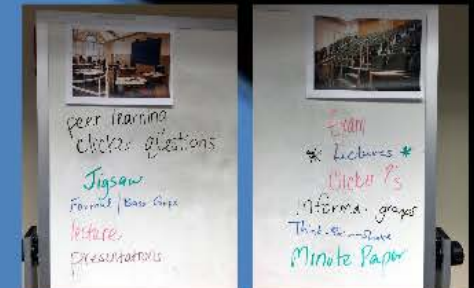 peer learning
clicker questions
Jigsaw
Formal / Base Groups
lecture
presentations
Exam
* Lectures *
Clicker ?'s
informal groups
Think-Pair-Share
Minute Paper